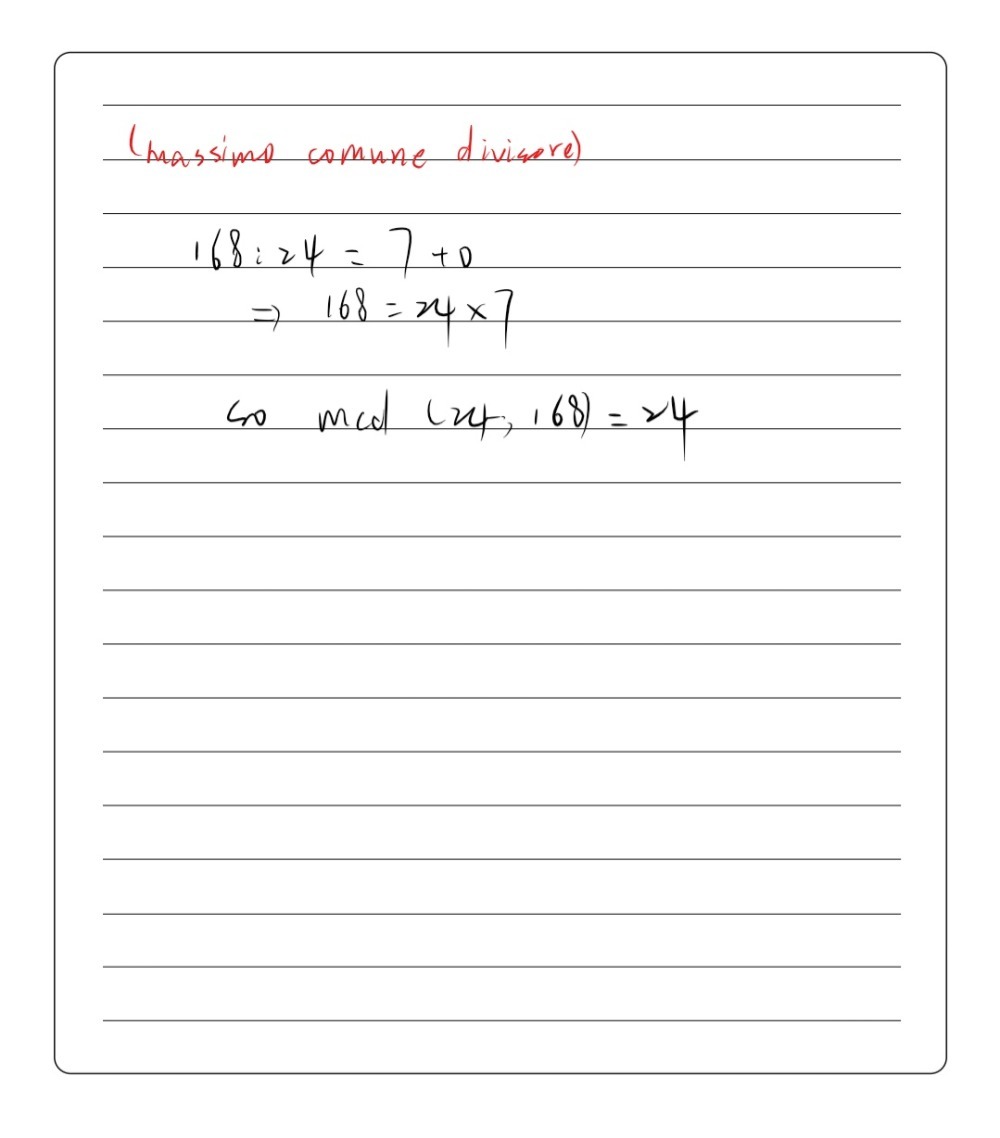 (massimo comune divisore)
168:24 = 7 + 0
⇒ 168 = 24 × 7
so mcd (24, 168) = 24